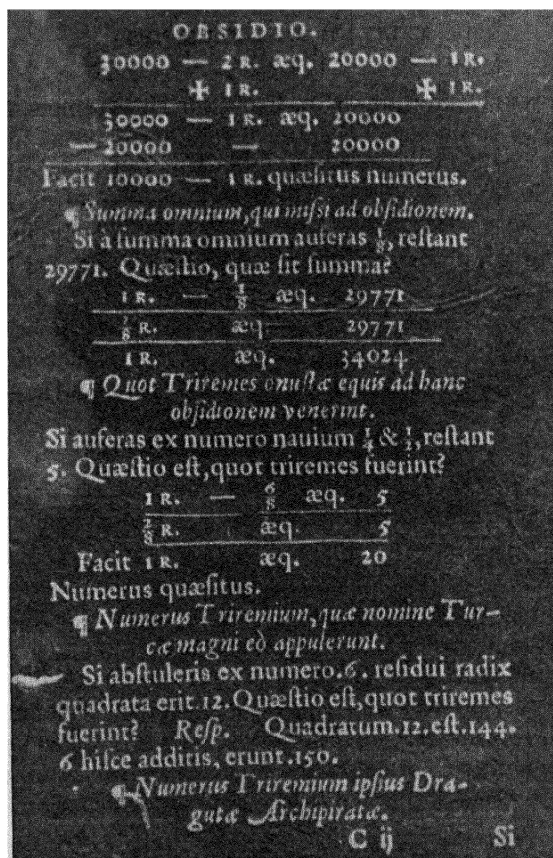 OBSIDIO.
30000 — 2 R. æq. 20000 — 1 R.
✠ 1 R. ✠ 1 R.
30000 — 1 R. æq. 20000
— 20000 — 20000
Facit 10000 — 1 R. quæſitus numerus.
¶ Summa omnium, qui miſſi ad obſidionem.
Si à ſumma omnium auferas 1/8, reſtant
29771. Quæſtio, quæ ſit ſumma?
1 R. — 1/8 æq. 29771
7/8 R. æq. 29771
1 R. æq. 34024
¶ Quot Triremes onuſtæ equis ad hanc
obſidionem venerint.
Si auferas ex numero nauium 1/4 & 1/2, reſtant
5. Quæſtio eſt, quot triremes fuerint?
1 R. — 6/8 æq. 5
2/8 R. æq. 5
Facit 1 R. æq. 20
Numerus quæſitus.
¶ Numerus Triremium, quæ nomine Tur-
cæ magni eò appulerunt.
Si abſtuleris ex numero .6. reſidui radix
quadrata erit .12. Quæſtio eſt, quot triremes
fuerint? Reſp. Quadratum .12. eſt .144.
6 hiſce additis, erunt .150.
¶ Numerus Triremium ipſius Dra-
gutæ Archipiratæ.
C ij Si